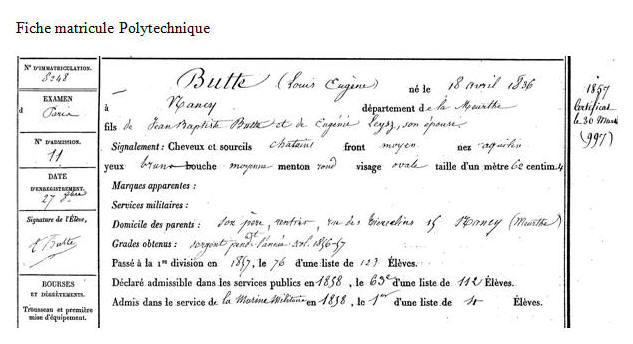 Fiche matricule Polytechnique
N° D'IMMATRICULATION.
8248
EXAMEN
d Paris
N° D'ADMISSION.
11
DATE
D'ENREGISTREMENT.
27 8bre
Signature de l'Élève,
E Butte
BOURSES
ET DÉGRÈVEMENTS.
Trousseau et première
mise d'équipement.
Butte (Louis Eugène) né le 18 avril 1836
à Nancy département de la Meurthe
fils de Jean Baptiste Butte et de Eugénie , son épouse
Signalement : Cheveux et sourcils chatains front moyen nez aquilin
yeux bruns bouche moyenne menton rond visage ovale taille d'un mètre 60 centim.
Marques apparentes :
Services militaires :
Domicile des parents : son père, rentier, rue des 15 Nancy (Meurthe)
Grades obtenus : sergent pendt l'année sol. 1856-57
Passé à la 1re division en 1857, le 76 d'une liste de 123 Élèves.
Déclaré admissible dans les services publics en 1858, le 63e d'une liste de 112 Élèves.
Admis dans le service de la Marine Militaire en 1858, le 1er d'une liste de 4 Élèves.
1857
Certificat
le 30 Mars
(997)